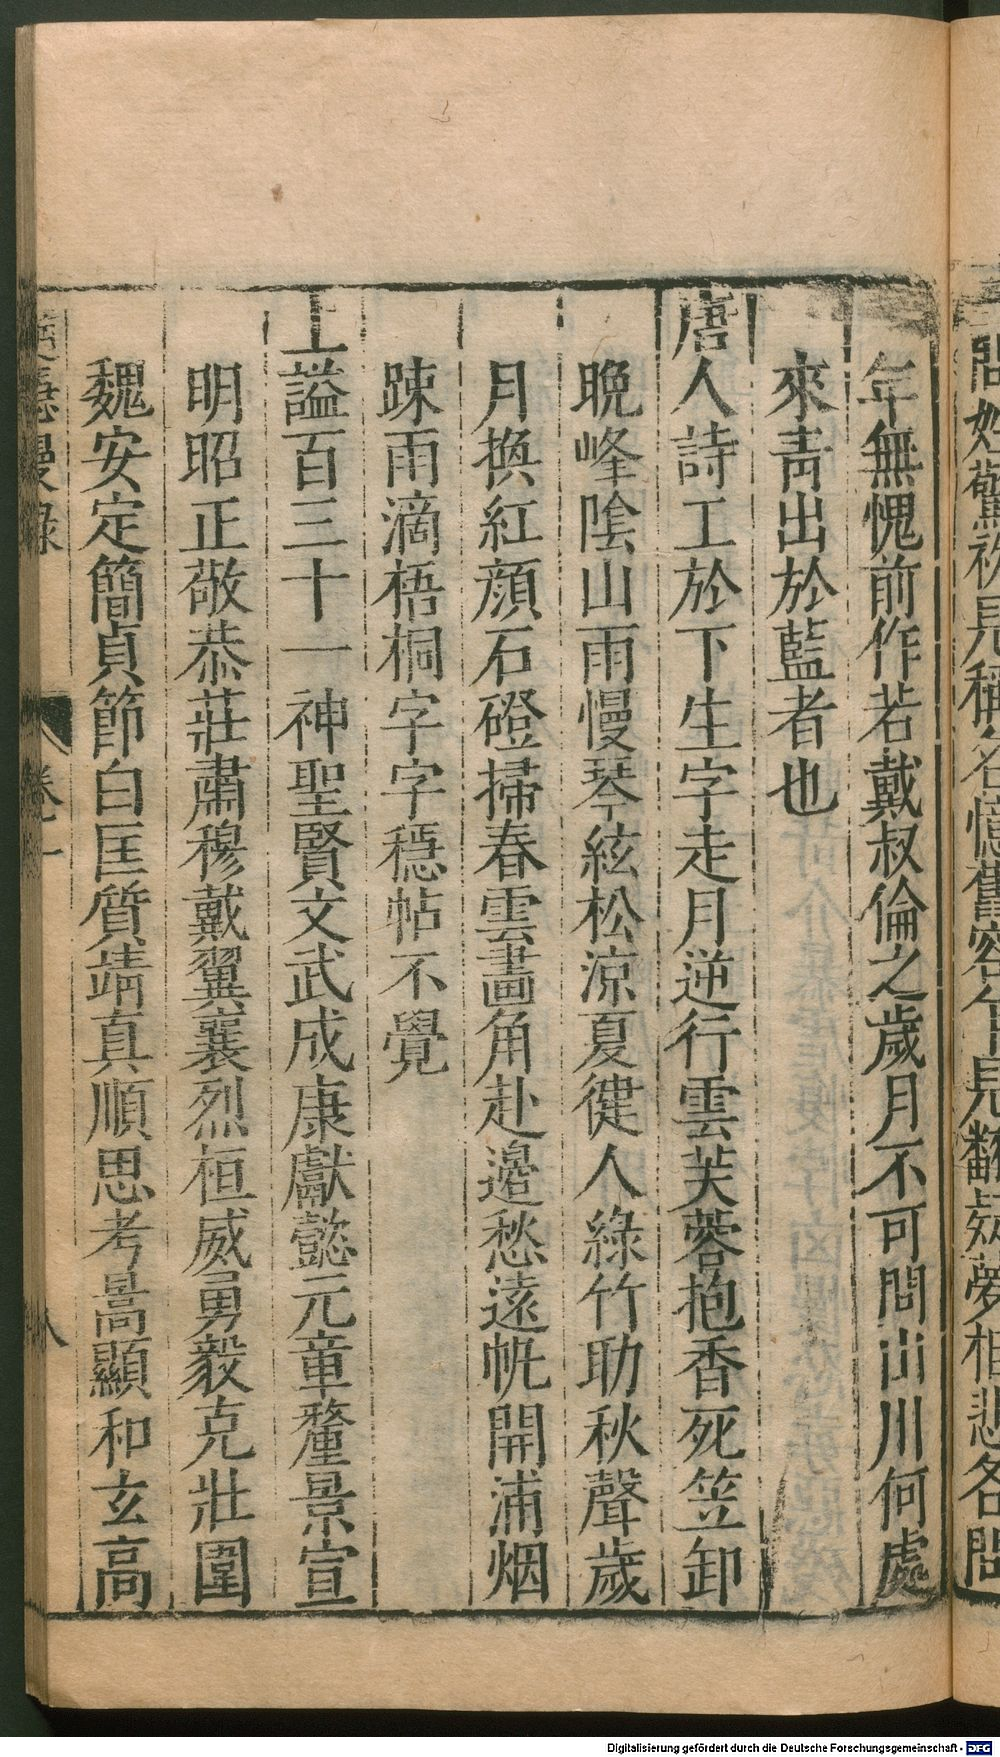 問姓驚初見稱名憶舊容乍見翻疑夢相悲各問
年無愧前作若戴叔倫之歲月不可問山川何處
來青出於藍者也
唐人詩工於下生字走月逆行雲芙蓉抱香死笠卸
晚峰陰山雨慢琴絃松涼夏健人綠竹助秋聲歲
月換紅顔石磴掃春雲畵角赴邊愁遠帆開浦烟
踈雨滴梧桐字字穩帖不覺
上謚百三十一神聖賢文武成康獻懿元章釐景宣
明昭正敬恭莊肅穆戴翼襄烈桓威勇毅克壯圉
魏安定簡貞節白匡質靖真順思考暠顯和玄高
漫錄
卷一
八
Digitalisierung gefördert durch die Deutsche Forschungsgemeinschaft - DFG